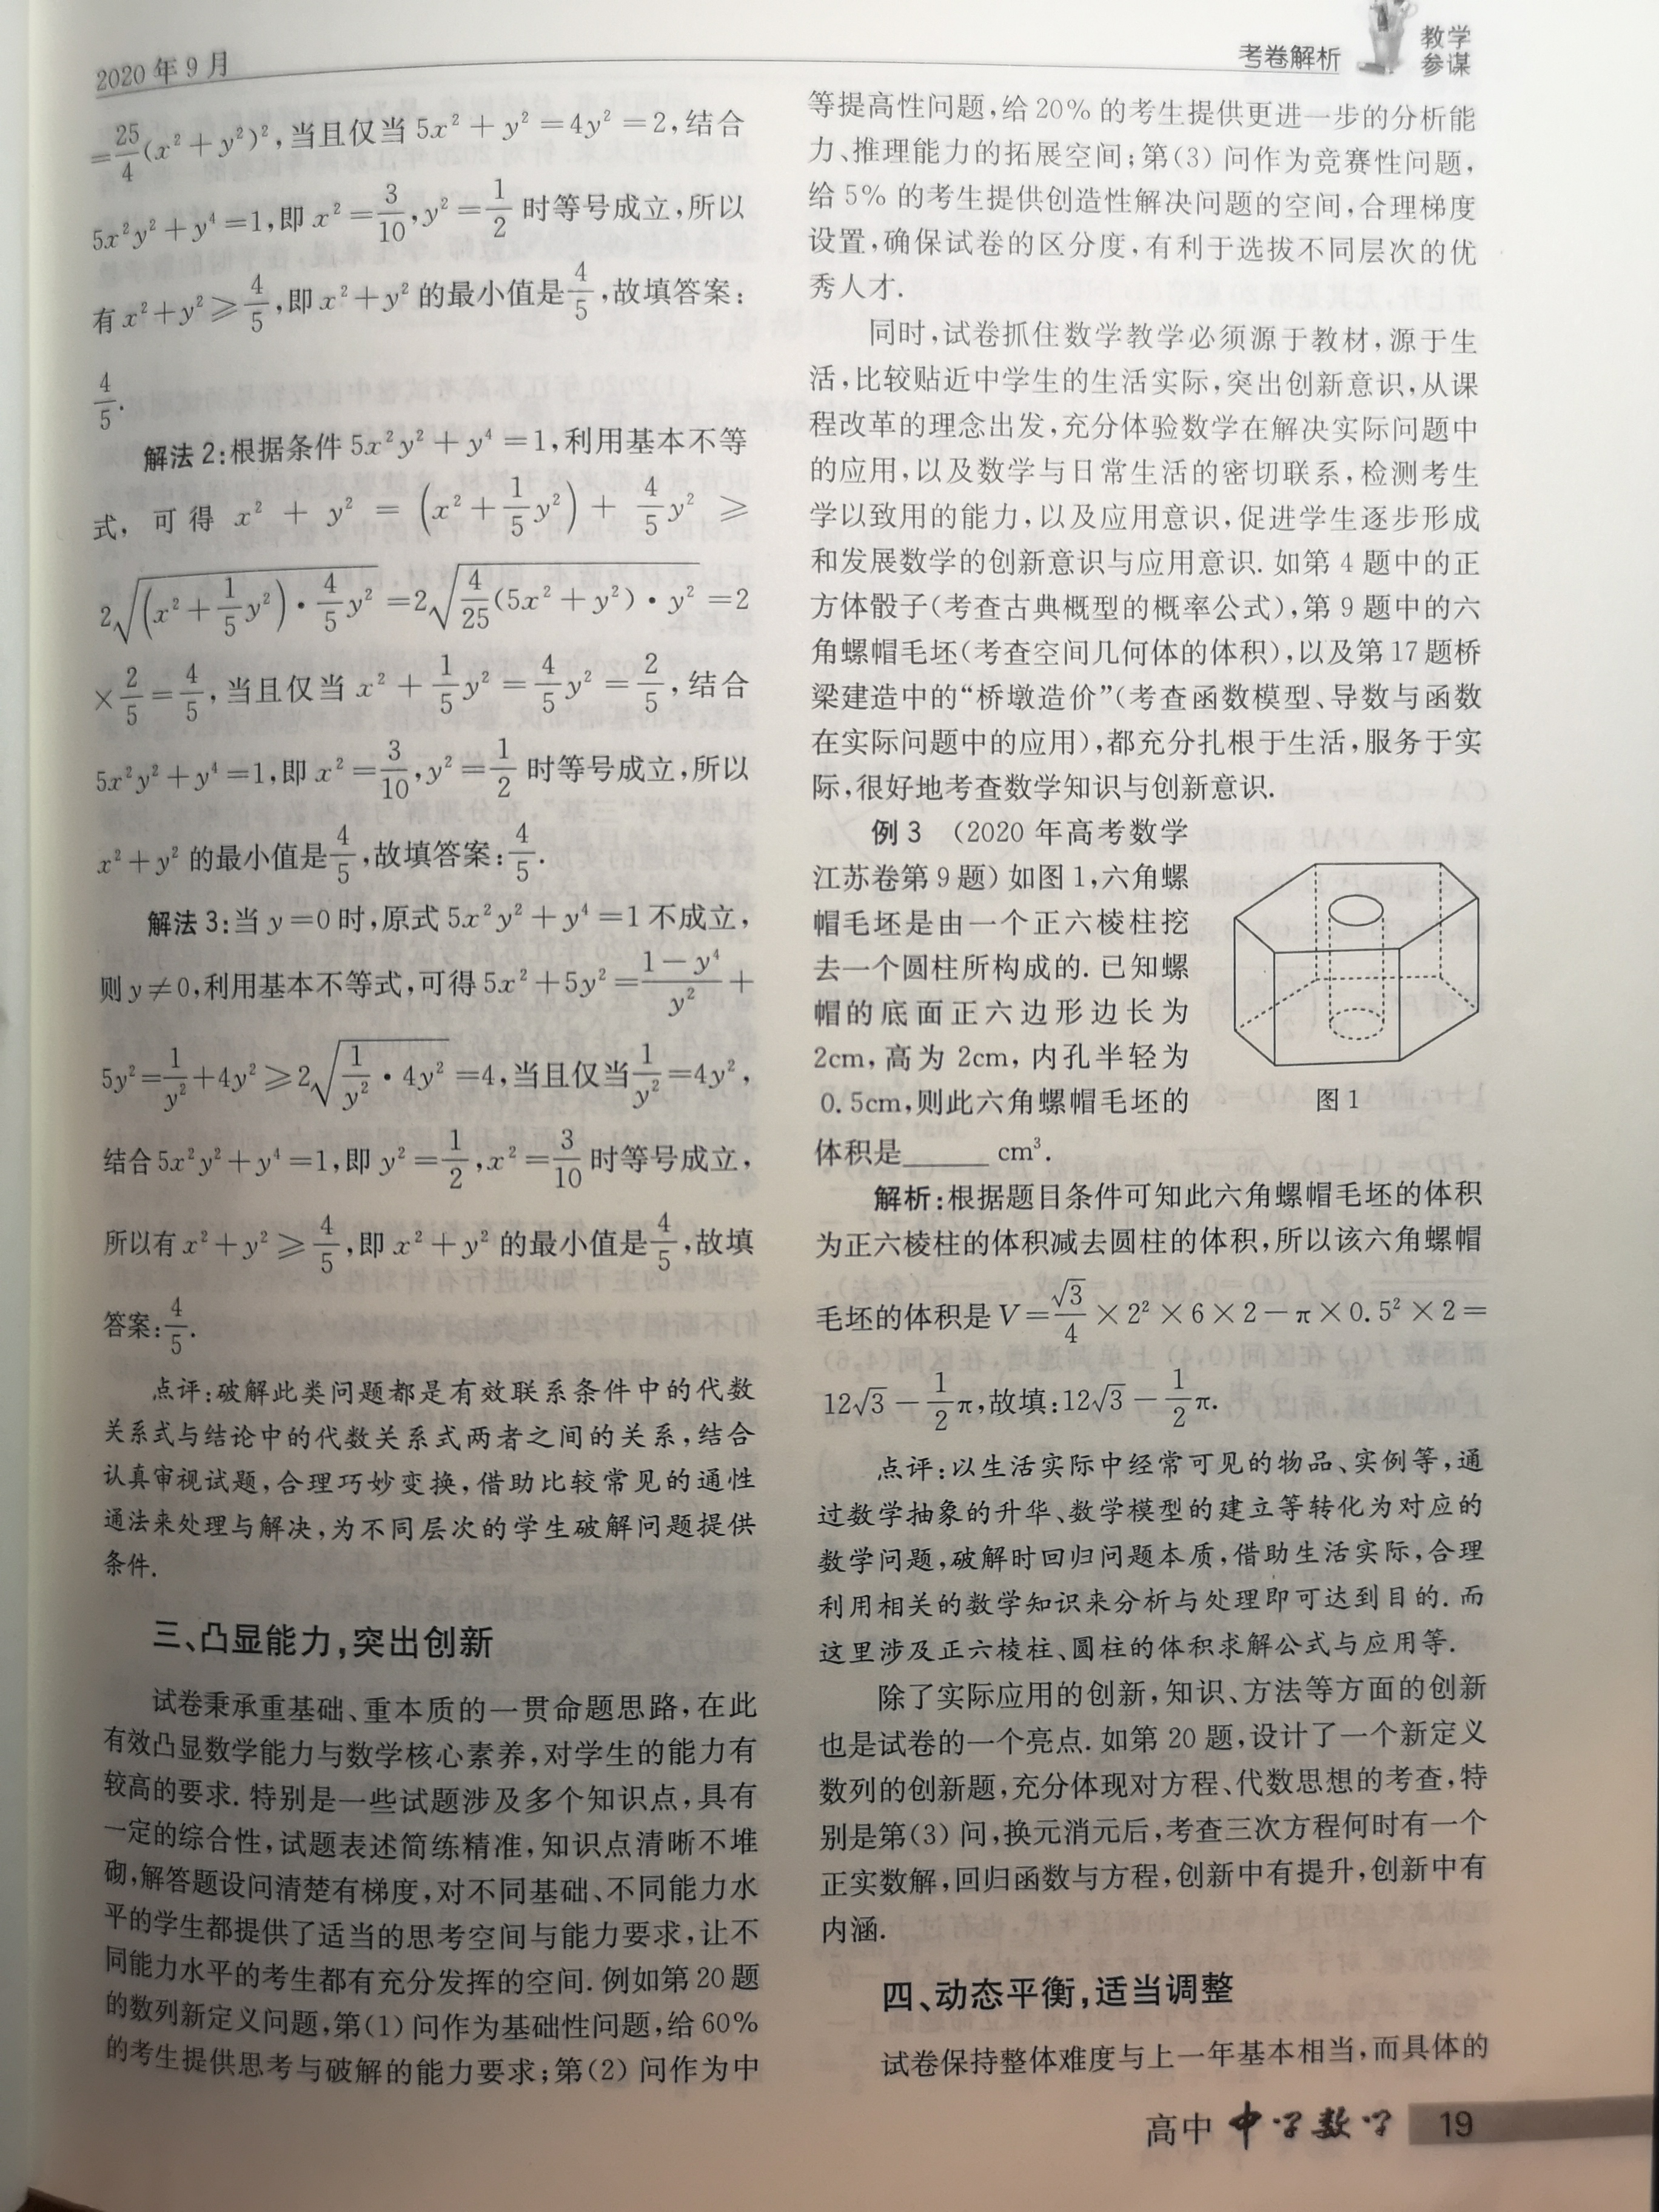 2020年9月
考卷解析
教学
参谋
=25/4(x²+y²)²,当且仅当 5x²+y²=4y²=2,结合
5x²y²+y⁴=1,即 x²=3/10,y²=1/2 时等号成立,所以
有 x²+y²≥4/5,即 x²+y² 的最小值是4/5,故填答案:
4/5.
解法2:根据条件 5x²y²+y⁴=1,利用基本不等
式,可得 x²+y²=(x²+1/5y²)+4/5y²≥
2√((x²+1/5y²)·4/5y²)=2√(4/25(5x²+y²)·y²)=2
×2/5=4/5,当且仅当 x²+1/5y²=4/5y²=2/5,结合
5x²y²+y⁴=1,即 x²=3/10,y²=1/2 时等号成立,所以
x²+y² 的最小值是4/5,故填答案:4/5.
解法3:当 y=0 时,原式 5x²y²+y⁴=1 不成立,
则 y≠0,利用基本不等式,可得 5x²+5y²=(1-y⁴)/y²+
5y²=1/y²+4y²≥2√(1/y²·4y²)=4,当且仅当1/y²=4y²,
结合 5x²y²+y⁴=1,即 y²=1/2,x²=3/10 时等号成立,
所以有 x²+y²≥4/5,即 x²+y² 的最小值是4/5,故填
答案:4/5.
点评:破解此类问题都是有效联系条件中的代数
关系式与结论中的代数关系式两者之间的关系,结合
认真审视试题,合理巧妙变换,借助比较常见的通性
通法来处理与解决,为不同层次的学生破解问题提供
条件.
三、凸显能力,突出创新
试卷秉承重基础、重本质的一贯命题思路,在此
有效凸显数学能力与数学核心素养,对学生的能力有
较高的要求.特别是一些试题涉及多个知识点,具有
一定的综合性,试题表述简练精准,知识点清晰不堆
砌,解答题设问清楚有梯度,对不同基础、不同能力水
平的学生都提供了适当的思考空间与能力要求,让不
同能力水平的考生都有充分发挥的空间.例如第20题
的数列新定义问题,第(1)问作为基础性问题,给60%
的考生提供思考与破解的能力要求;第(2)问作为中
等提高性问题,给20%的考生提供更进一步的分析能
力、推理能力的拓展空间;第(3)问作为竞赛性问题,
给5%的考生提供创造性解决问题的空间,合理梯度
设置,确保试卷的区分度,有利于选拔不同层次的优
秀人才.
同时,试卷抓住数学教学必须源于教材,源于生
活,比较贴近中学生的生活实际,突出创新意识,从课
程改革的理念出发,充分体验数学在解决实际问题中
的应用,以及数学与日常生活的密切联系,检测考生
学以致用的能力,以及应用意识,促进学生逐步形成
和发展数学的创新意识与应用意识.如第4题中的正
方体骰子(考查古典概型的概率公式),第9题中的六
角螺帽毛坯(考查空间几何体的体积),以及第17题桥
梁建造中的“桥墩造价”(考查函数模型、导数与函数
在实际问题中的应用),都充分扎根于生活,服务于实
际,很好地考查数学知识与创新意识.
例3 (2020年高考数学
江苏卷第9题)如图1,六角螺
帽毛坯是由一个正六棱柱挖
去一个圆柱所构成的.已知螺
帽的底面正六边形边长为
2cm,高为2cm,内孔半轻为
0.5cm,则此六角螺帽毛坯的
体积是______ cm³.
图1
解析:根据题目条件可知此六角螺帽毛坯的体积
为正六棱柱的体积减去圆柱的体积,所以该六角螺帽
毛坯的体积是 V=√3/4×2²×6×2-π×0.5²×2=
12√3-1/2π,故填:12√3-1/2π.
点评:以生活实际中经常可见的物品、实例等,通
过数学抽象的升华、数学模型的建立等转化为对应的
数学问题,破解时回归问题本质,借助生活实际,合理
利用相关的数学知识来分析与处理即可达到目的.而
这里涉及正六棱柱、圆柱的体积求解公式与应用等.
除了实际应用的创新,知识、方法等方面的创新
也是试卷的一个亮点.如第20题,设计了一个新定义
数列的创新题,充分体现对方程、代数思想的考查,特
别是第(3)问,换元消元后,考查三次方程何时有一个
正实数解,回归函数与方程,创新中有提升,创新中有
内涵.
四、动态平衡,适当调整
试卷保持整体难度与上一年基本相当,而具体的
高中 中学数学 19